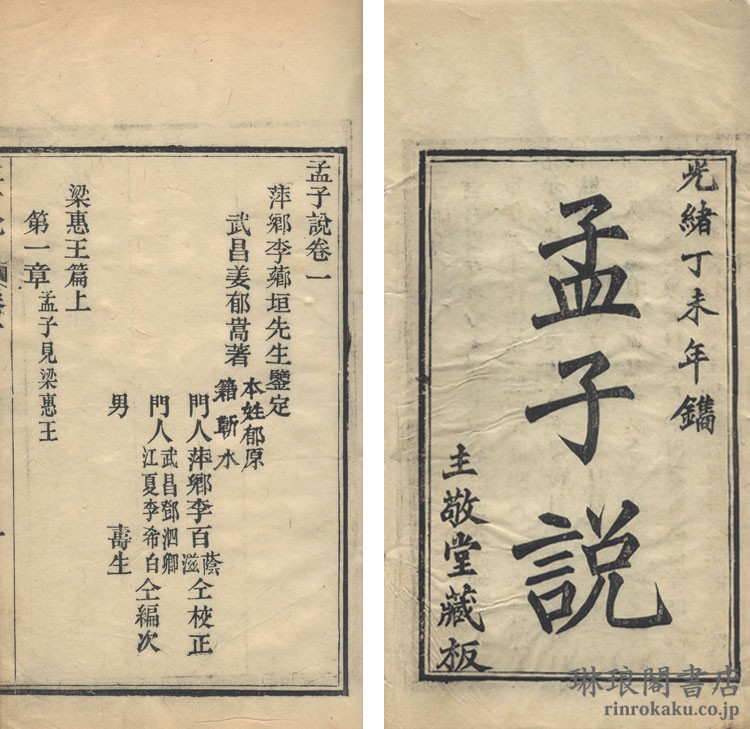 光緒丁未年鐫
孟子説
主敬堂藏板
琳琅閣書店
rinrokaku.co.jp
孟子說卷一
萍鄉李薌垣先生鑒定
武昌姜郁嵩著
本姓郁原
籍蘄水
門人萍鄉李百蔭滋仝校正
門人武昌鄧泗卿江夏李希白仝編次
男壽生
梁惠王篇上
第一章孟子見梁惠王